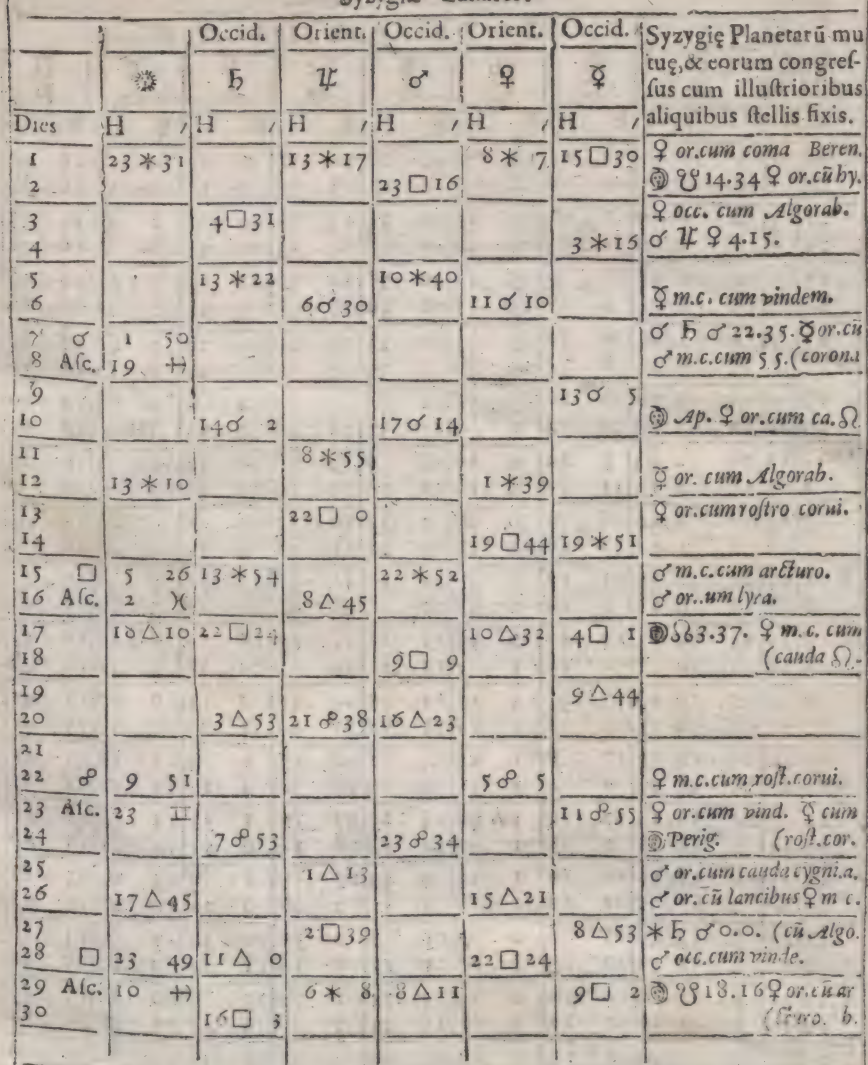 Occid. Orient. Occid. Orient. Occid. Syzygię Planetarũ mu
☉ ♄ ♃ ♂ ♀ ☿ tuę, & eorum congreſ-
ſus cum illuſtrioribus
Dies H ′ H ′ H ′ H ′ H ′ H ′ aliquibus ſtellis fixis.
1 23 ⚹ 31 13 ⚹ 17 8 ⚹ 7 15 □ 30 ♀ or.cum coma Beren.
2 23 □ 16 ☽ ☋ 14.34 ♀ or.cũ hy.
3 4 □ 31 ♀ occ. cum Algorab.
4 3 ⚹ 16 ☌ ♃ ♀ 4.15.
5 13 ⚹ 22 10 ⚹ 40
6 6 ☌ 30 11 ☌ 10 ☿ m.c. cum vindem.
7 ☌ 1 50 ☌ ♄ ♂ 22.35. ☿ or.cũ
8 Aſc. 19 ♓ ♂ m.c.cum 55. (corona
9 13 ☌ 5
10 14 ☌ 2 17 ☌ 14 ☽ Ap. ♀ or.cum ca. ♌
11 8 ⚹ 55
12 13 ⚹ 10 1 ⚹ 39 ☿ or. cum Algorab.
13 22 □ 0 ☿ or.cum roſtro corui.
14 19 □ 44 19 ⚹ 51
15 □ 5 26 13 ⚹ 54 22 ⚹ 52 ♂ m.c.cum arcturo.
16 Aſc. 2 ♓ 8 △ 45 ♂ or..um lyra.
17 18 △ 10 22 □ 24 10 △ 32 4 □ 1 ☽ ☊ 3.37. ♀ m.c. cum
18 9 □ 9 (cauda ♌.
19 9 △ 44
20 3 △ 53 21 ☍ 38 16 △ 23
21
22 ☍ 9 51 5 ☍ 5 ♀ m.c.cum roſt.corui.
23 Aſc. 23 ♊ 11 ☍ 55 ♀ or.cum vind. ☿ cum
24 7 ☍ 53 23 ☍ 34 ☽ Perig. (roſt.cor.
25 1 △ 13 ♂ or.cum cauda cygni.a.
26 17 △ 45 15 △ 21 ♂ or.cũ lancibus ♀ m c.
27 2 □ 39 8 △ 53 ⚹ ♄ ♂ 0.0. (cũ Algo.
28 □ 23 49 11 △ 0 22 □ 24 ♂ occ.cum vinde.
29 Aſc. 10 ♓ 6 ⚹ 8 8 △ 11 9 □ 2 ☽ ☋ 18.16 ♀ or.cũ ar
30 16 □ 3 b.